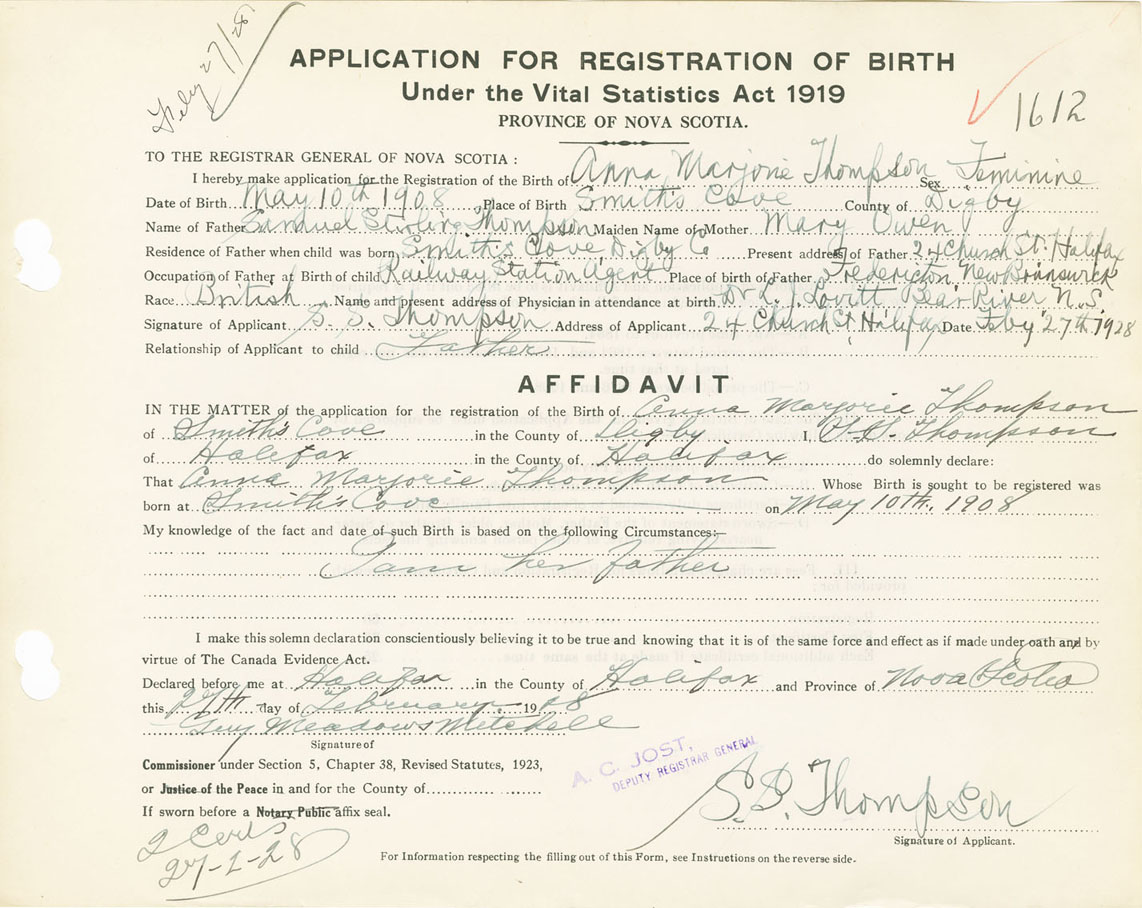 Feby 27/28
APPLICATION FOR REGISTRATION OF BIRTH
Under the Vital Statistics Act 1919
PROVINCE OF NOVA SCOTIA.
1612
TO THE REGISTRAR GENERAL OF NOVA SCOTIA :
I hereby make application for the Registration of the Birth of Anna Marjorie Thompson Sex Feminine
Date of Birth May 10th 1908 Place of Birth Smith's Cove County of Digby
Name of Father Samuel Stirling Thompson Maiden Name of Mother Mary Owen
Residence of Father when child was born Smith's Cove, Digby Co Present address of Father 24 Church St. Halifax
Occupation of Father at Birth of child Railway Station Agent Place of birth of Father Fredericton New Brunswick
Race British Name and present address of Physician in attendance at birth Dr L. J. Lovitt Bear River N.S.
Signature of Applicant S. S. Thompson Address of Applicant 24 Church St, Halifax Date Feby 27th 1928
Relationship of Applicant to child Father
AFFIDAVIT
IN THE MATTER of the application for the registration of the Birth of Anna Marjorie Thompson
of Smith's Cove in the County of Digby I, S. S. Thompson
of Halifax in the County of Halifax do solemnly declare:
That Anna Marjorie Thompson Whose Birth is sought to be registered was
born at Smith's Cove on May 10th, 1908
My knowledge of the fact and date of such Birth is based on the following Circumstances:—
I am her father
I make this solemn declaration conscientiously believing it to be true and knowing that it is of the same force and effect as if made under oath and by
virtue of The Canada Evidence Act.
Declared before me at Halifax in the County of Halifax and Province of Nova Scotia
this 27th day of February 1928
Guy Meadows Mitchell
Signature of
Commissioner under Section 5, Chapter 38, Revised Statutes, 1923,
or Justice of the Peace in and for the County of
If sworn before a Notary Public affix seal.
A. C. JOST,
DEPUTY REGISTRAR GENERAL
S. S. Thompson
Signature of Applicant.
2 Certs
27-2-28
For Information respecting the filling out of this Form, see Instructions on the reverse side.